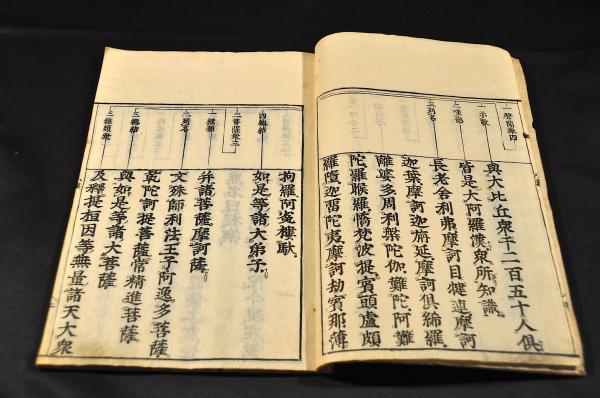 一聲聞衆四
一示數
三列名
與大比丘衆千二百五十人俱
皆是大阿羅漢衆所知識
長老舍利弗摩訶目犍連摩訶
迦葉摩訶迦旃延摩訶俱絺羅
離婆多周利槃陀伽難陀阿難
陀羅睺羅憍梵波提賓頭盧頗
羅墮迦留陀夷摩訶劫賓那薄
四總結
二菩薩衆三
一標類
二列名
三總結
三雜類衆
拘羅阿㝹樓馱
如是等諸大弟子
并諸菩薩摩訶薩
文殊師利法王子阿逸多菩薩
乾陀訶提菩薩常精進菩薩
與如是等諸大菩薩
及釋提桓因等無量諸天大衆